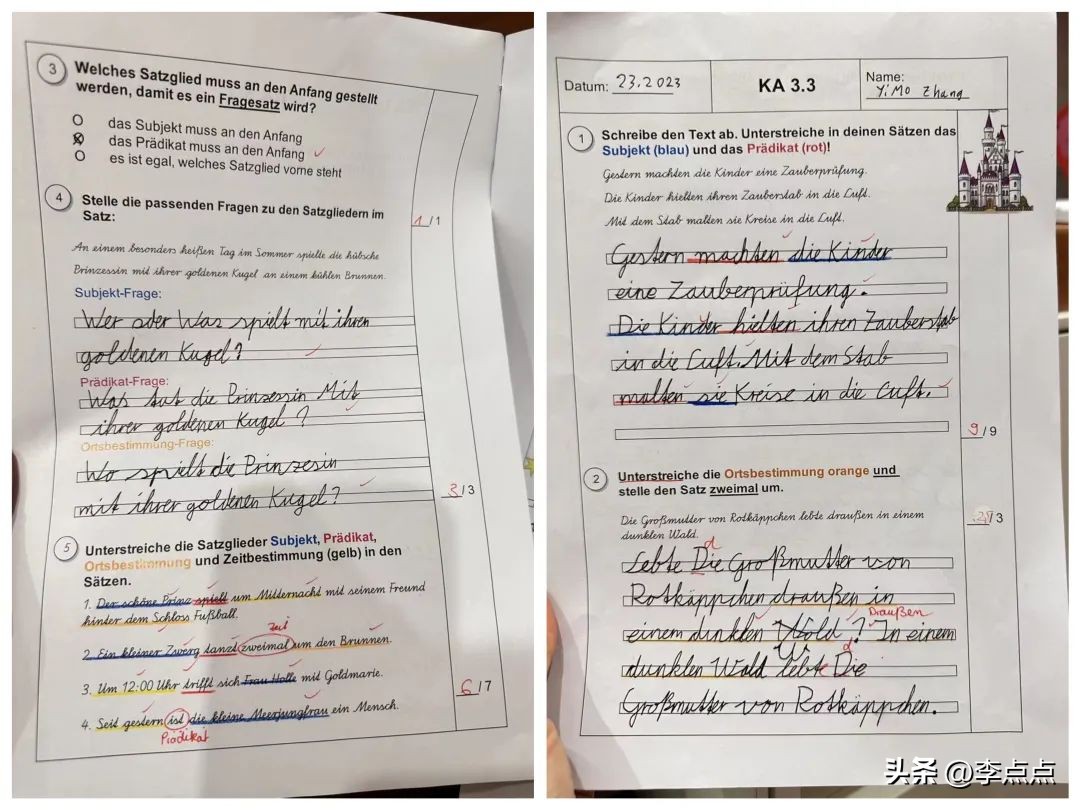 3
Welches Satzglied muss an den Anfang gestellt
werden, damit es ein Fragesatz wird?
das Subjekt muss an den Anfang
das Prädikat muss an den Anfang
es ist egal, welches Satzglied vorne steht
1/1
4
Stelle die passenden Fragen zu den Satzgliedern im
Satz:
An einem besonders heißen Tag im Sommer spielte die hübsche
Prinzessin mit ihrer goldenen Kugel an einem kühlen Brunnen.
Subjekt-Frage:
Wer oder Was spielt mit ihren
goldenen Kugel?
Prädikat-Frage:
Was tut die Prinzessin Mit
ihrer goldenen Kugel?
Ortsbestimmung-Frage:
Wo spielt die Prinzesin
mit ihrer goldenen Kugel?
3/3
5
Unterstreiche die Satzglieder Subjekt, Prädikat,
Ortsbestimmung und Zeitbestimmung (gelb) in den
Sätzen.
1. Der schöne Prinz spielt um Mitternacht mit seinem Freund
hinter dem Schloss Fußball.
Zeit
2. Ein kleiner Zwerg tanzt zweimal um den Brunnen.
3. Um 12:00 Uhr trifft sich Frau Holle mit Goldmarie.
6/7
4. Seit gestern ist die kleine Meerjungfrau ein Mensch.
Prädikat
Datum: 23.2023
KA 3.3
Name:
YiMo Zhang
1
Schreibe den Text ab. Unterstreiche in deinen Sätzen das
Subjekt (blau) und das Prädikat (rot)!
Gestern machten die Kinder eine Zauberprüfung.
Die Kinder hielten ihren Zauberstab in die Luft.
Mit dem Stab malten sie Kreise in die Luft.
Gestern machten die Kinder
eine Zauberprüfung.
Die Kinder hielten ihren Zauberstab
in die Luft. Mit dem Stab
malten sie Kreise in die Luft.
9/9
2
Unterstreiche die Ortsbestimmung orange und
stelle den Satz zweimal um.
Die Großmutter von Rotkäppchen lebte draußen in einem
dunklen Wald.
/3
d
Lebte Die Großmutter von
Rotkäppchen draußen in
Draußen
einem dunklen Wald? In einem
d
dunklen Wald lebte Die
Großmutter von Rotkäppchen.
头条 @李点点